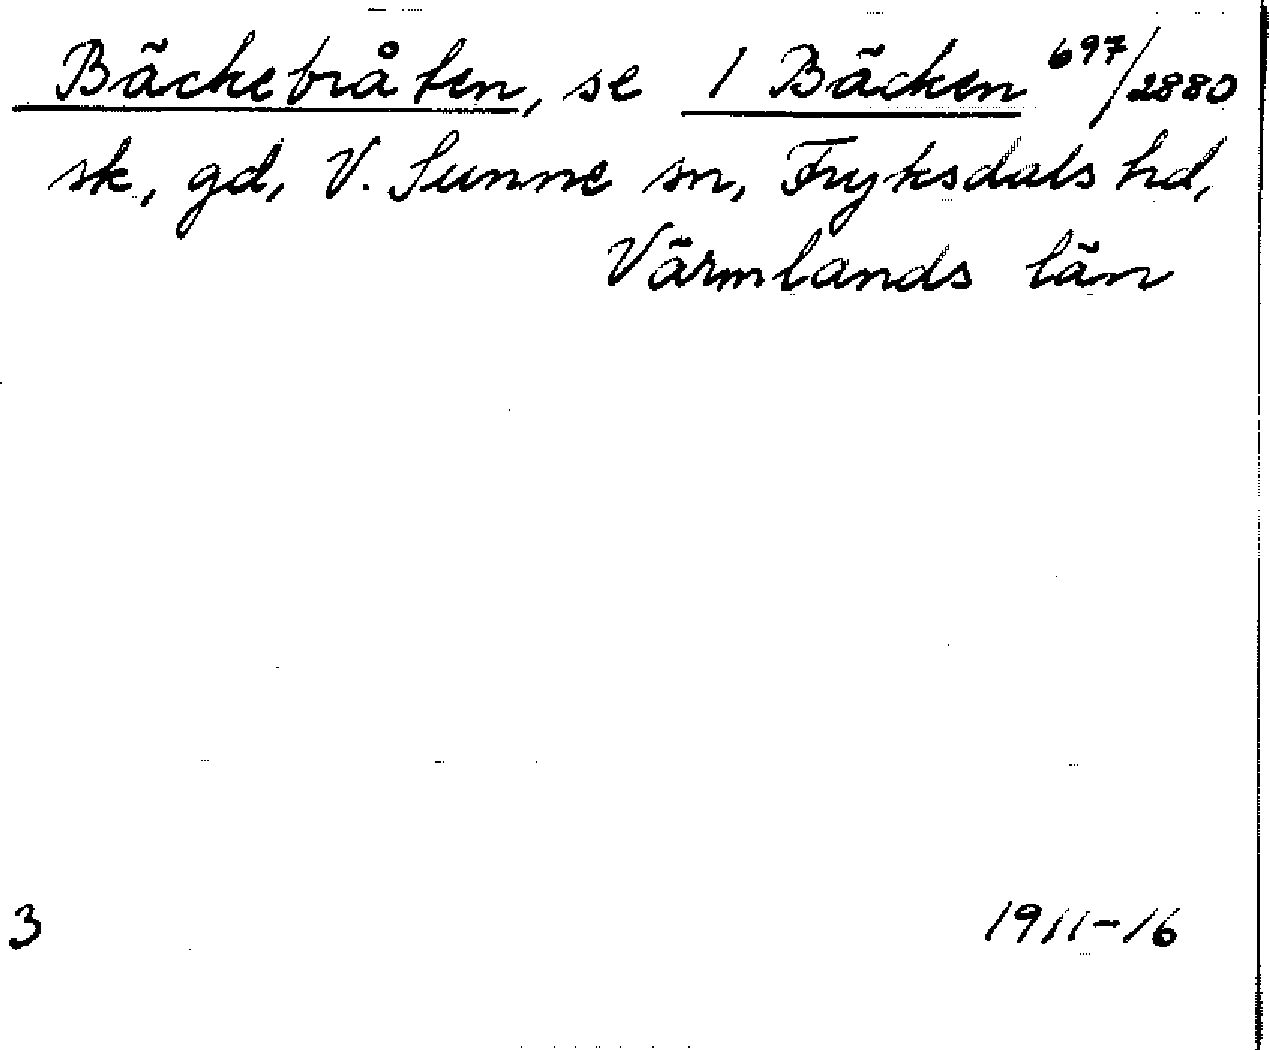 Bäckebråten, se 1 Bäcken 697/2880
sk, gd, V. Sunne sn, Fryksdals hd,
Värmlands län
3 1911-16